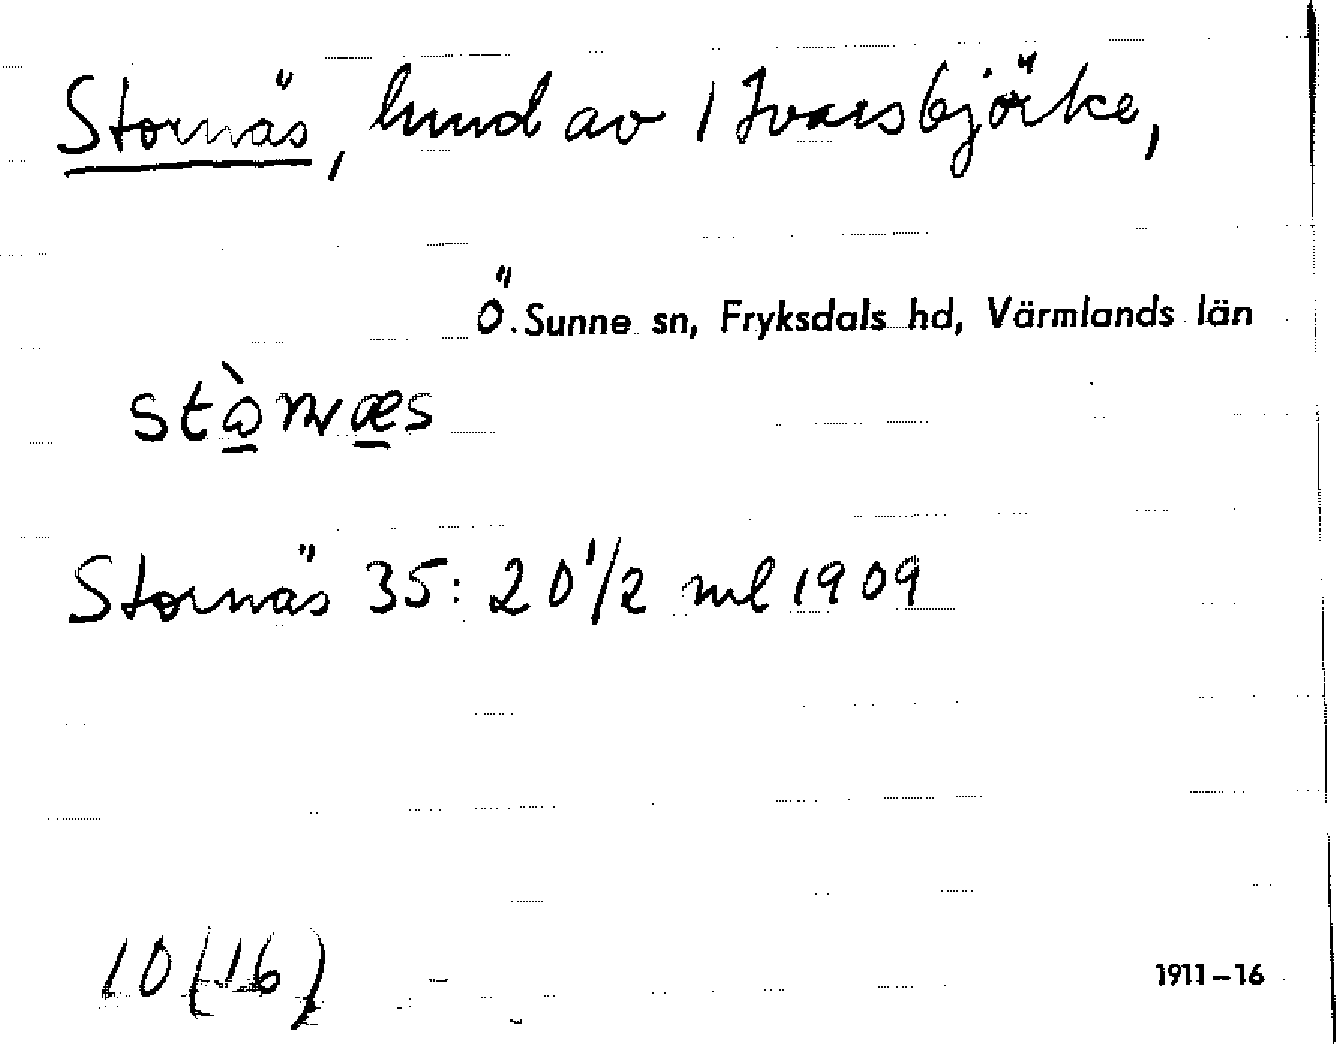 Stornäs, hmd av 1 Ivarsbjörke,
Ö. Sunne sn, Fryksdals hd, Värmlands län
Stornäs 35: 20 1/2 ml 1909
10 (16)
1911–16